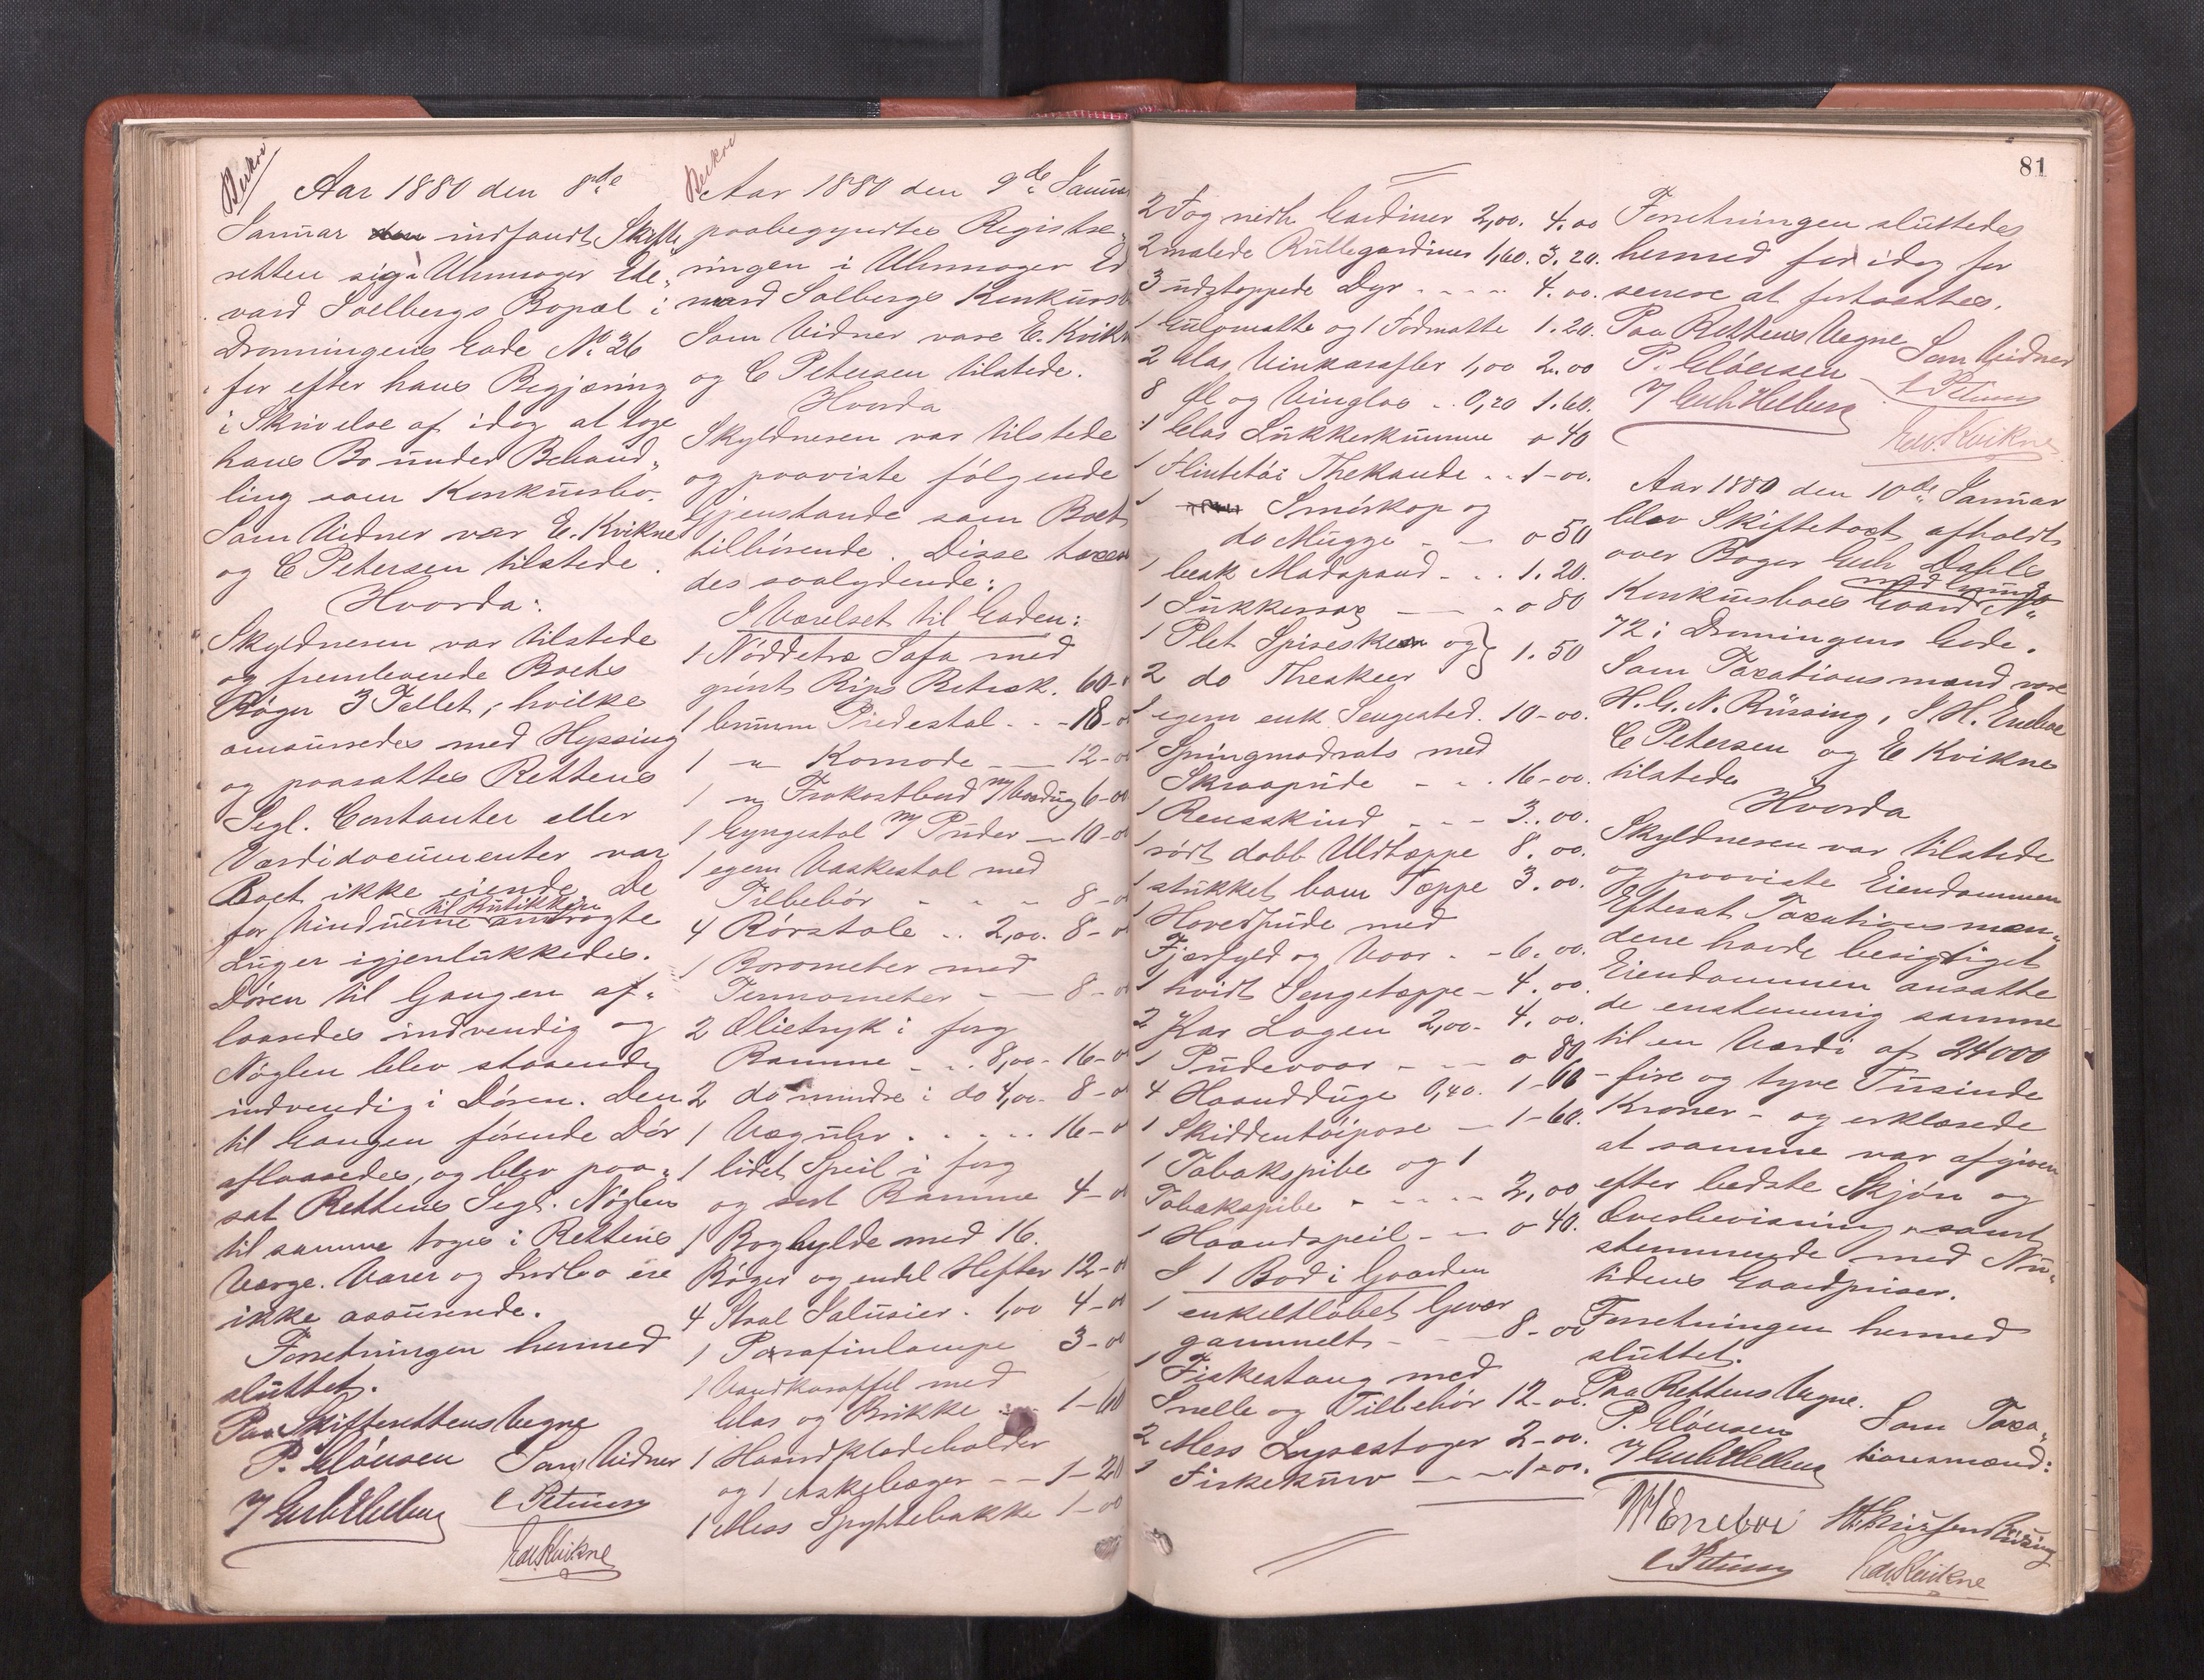 Aar 1880 den 8de
Januar indfandt Skifte
retten sig i Uhrmager Ed-
vard Solbergs Bopæl i
Dronningens Gade No. 26
for efter hans Begjæring
i Skrivelse af idag at tage
hans Bo under Behand-
ling som Konkursbo.
Som Vidner var E. Kvikne
og C Petersen tilstede.
Hvorda:
Skyldneren var tilstede
og fremleverede Boets
Bøger 3 Tallet, hvilke
omsnørredes med Hyssing
og paasattes Rettens
Segl. Contanter eller
Værdidocumenter var
Boet ikke eiende. De
for Vinduerne til Butikken anbragte
Luger igjenlukkedes.
Døren til Gangen af-
laasedes indvendig og
Nøglen blev staaende
indvendig i Døren. Den
til Gangen førende Dør
aflaasedes, og blev paa-
sat Rettens Segl. Nøglen
til samme toges i Rettens
Værge. Varer og Indbo ere
ikke assurerede.
Forretningen hermed
sluttet.
Paa Skifterettens Vegne
P. Clausen Som Vidner
C Petersen
Edv. Kvikne
Aar 1880 den 9de Januar
paabegyndtes Registre-
ringen i Uhrmager Ed
vard Solbergs Konkursbo
Som Vidner vare E. Kvikne
og C Petersen tilstede.
Hvorda
Skyldneren var tilstede
og paaviste følgende
Gjenstande som Boet
tilhørende. Disse taxere
des saalydende:
I Værelset til Gaden:
1 Nøddetræ Sofa med
grønt Rips Betræk. 60-
1 bruun Piedestal . . - 18-
1 " Komode — 12-
1 " Frokostbord m/ Voxdug 6-00
1 Gyngestol m/ Puder — 10-
1 egern Vaskestol med
Tilbehør - - - 8-
4 Rørstole . . 2,00. 8-
1 Barometer med
Termometer - — 8-
2 Olietryk i forg
Ramme - . . 8,00- 16-
2 do mindre i do 4,00- 8-
1 Væguhr . . . . . 16-
1 lidet Speil i forg
og sort Ramme 4-
1 Boghylde med 16.
Bøger og endel Hefter 12-
4 Straa Jalusier . 1,00 4-
1 Parafinlampe 3-00
1 Vandkaraffel med
Glas og Brikke 1-60
1 Haandklædeholder
og 1 Askebæger - — 1-20
1 Mess Spyttebakke 1-00
81
2 Fag nedh Gardiner 2,00. 4.00
2 malede Rullegardiner 1,60. 3.20.
3 udstoppede Dyr - - - - 4.00.
1 Gulvmatte og 1 Fodmatte 1.20.
2 Glas Vinkarafler 1,00 2.00
8 Øl og Vinglas . . 0,20 1.60.
1 Glas Sukkerkumme 0 40
1 Flintetøi Thekande . . 1-00.
1 Smørkop og
do Mugge - — 0 50
1 bræk Madspand - . . 1.20.
1 Sukkersax — - 0 80
1 Plet Spiseskeer og } 1.50
2 do Theskeer
1 egern enk Sengested. 10-00.
1 Springmadrats med
Skraapude - - . 16-00.
1 Rensskind - - - 3.00.
1 rødt dobb Uldtæppe 8.00.
1 stukket bom Tæppe 3.00.
1 Hovedpude med
Fjærfyld og Vaar . - 6.00.
1 hvidt Sengetæppe - 4.00.
2 Par Lagen 2,00- 4.00.
1 Pudevaar - - - 0 80
4 Haandduge 0,40. 1-60
1 Skiddentøipose — 1-60.
1 Tobakspibe og 1
Tobakspibe . - - - - 2,00
1 Haandspeil - — 0 40.
I 1 Bod i Gaarden
1 enkeltløbet Gevær
gammelt - - - 8-00
1 Fiskestang med
Snelle og Tilbehør 12-00.
2 Mess Lysestager 2-00.
1 Fiskekurv — - 1-00.
Forretningen sluttedes
hermed for idag for
senere at fortsættes.
Paa Rettens Vegne
P. Clausen Som Vidner
C Petersen
Edv. Kvikne
Aar 1880 den 10de Januar
blev Skifteboet afholdt
over Bager Dahls
Konkursboes Gaard med Grund No
72 i Dronningens Gade.
Som Taxationsmænd vare
H. C. N. Rüssing, S. H. Eneboe
C Petersen og E Kvikne
tilstede
Hvorda
Skyldneren var tilstede
og paaviste Eiendommen
Efterat Taxationsmæn-
dene havde besigtiget
Eiendommen ansatte
de enstemmig samme
til en Værdi af 24000
- fire og tyve Tusinde
Kroner - og erklærede
at samme var afgiven
efter bedste Skjøn og
Overbevisning, samt
stemmende med Nu-
tidens Gaardpriser.
Forretningen hermed
sluttet.
Paa Rettens Vegne.
P. Clausen Som Taxa-
tionsmænd:
Eneboe
C Petersen Edv. Kvikne